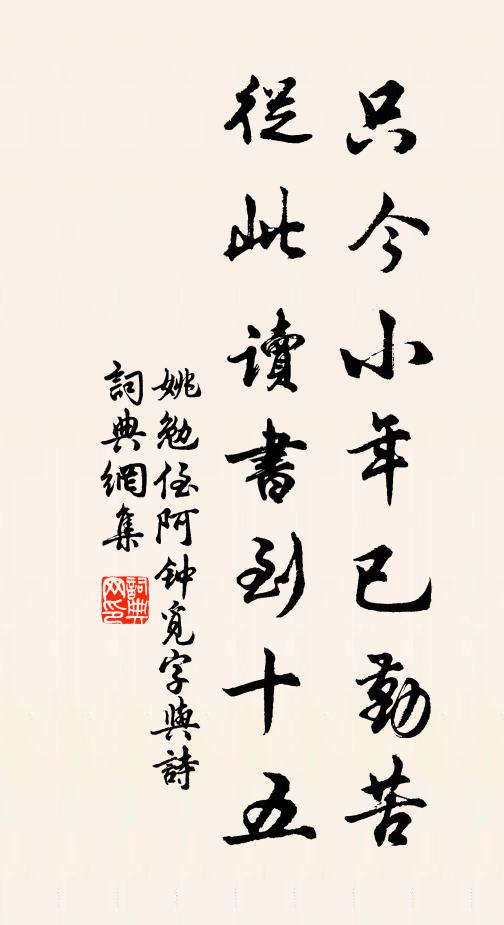 只今小年已勤苦
從此讀書到十五
姚勉侄阿钟覓字與詩
詞典網集
詞典
网印